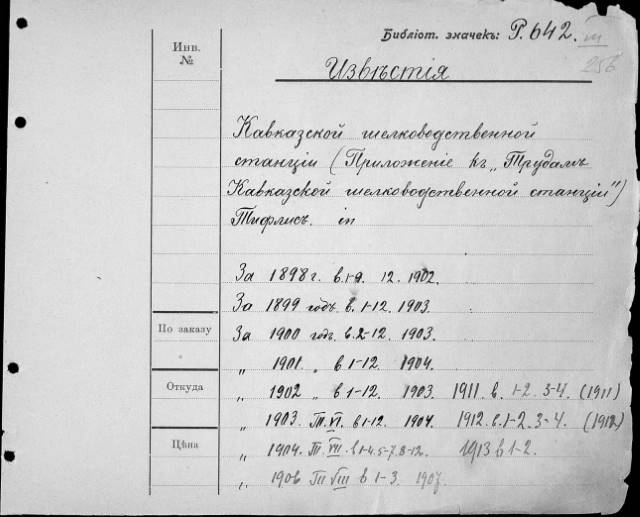 Библіот. значекъ: Р. 642. III
256
Инв.
№
Извѣстія
Кавказской шелководственной
станціи (Приложеніе къ „Трудамъ
Кавказской шелководственной станціи")
Тифлисъ. in
За 1898 г. в. 1-9. 12. 1902.
За 1899 годъ в. 1-12. 1903.
По заказу
За 1900 годъ. в. 2-12. 1903.
„ 1901. „ в 1-12. 1904.
Откуда
„ 1902 „ в 1-12. 1903. 1911. в. 1-2. 3-4. (1911)
„ 1903. Т. VI. в 1-12. 1904. 1912. в. 1-2. 3-4. (1912)
Цѣна
„ 1904. Т. VII. в 1-4. 5-7. 8-12. 1913 в 1-2.
„ 1906 Т. VIII в 1-3. 1907.